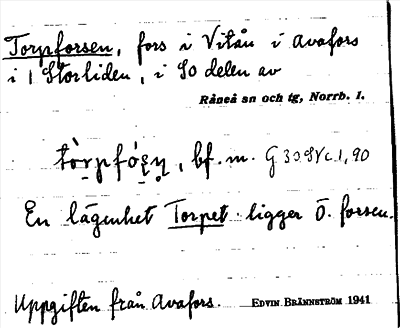 Torpforsen, fors i Vitån i Avafors
i 1 Storliden, i SO delen av
Råneå sn och tg, Norrb. l.
tòr̥pfós̥n̥, bf. m. G 30 SV c.1, 90
En lägenhet Torpet ligger Ö. forsen.
Uppgiften från Avafors. EDVIN BRÄNNSTRÖM 1941